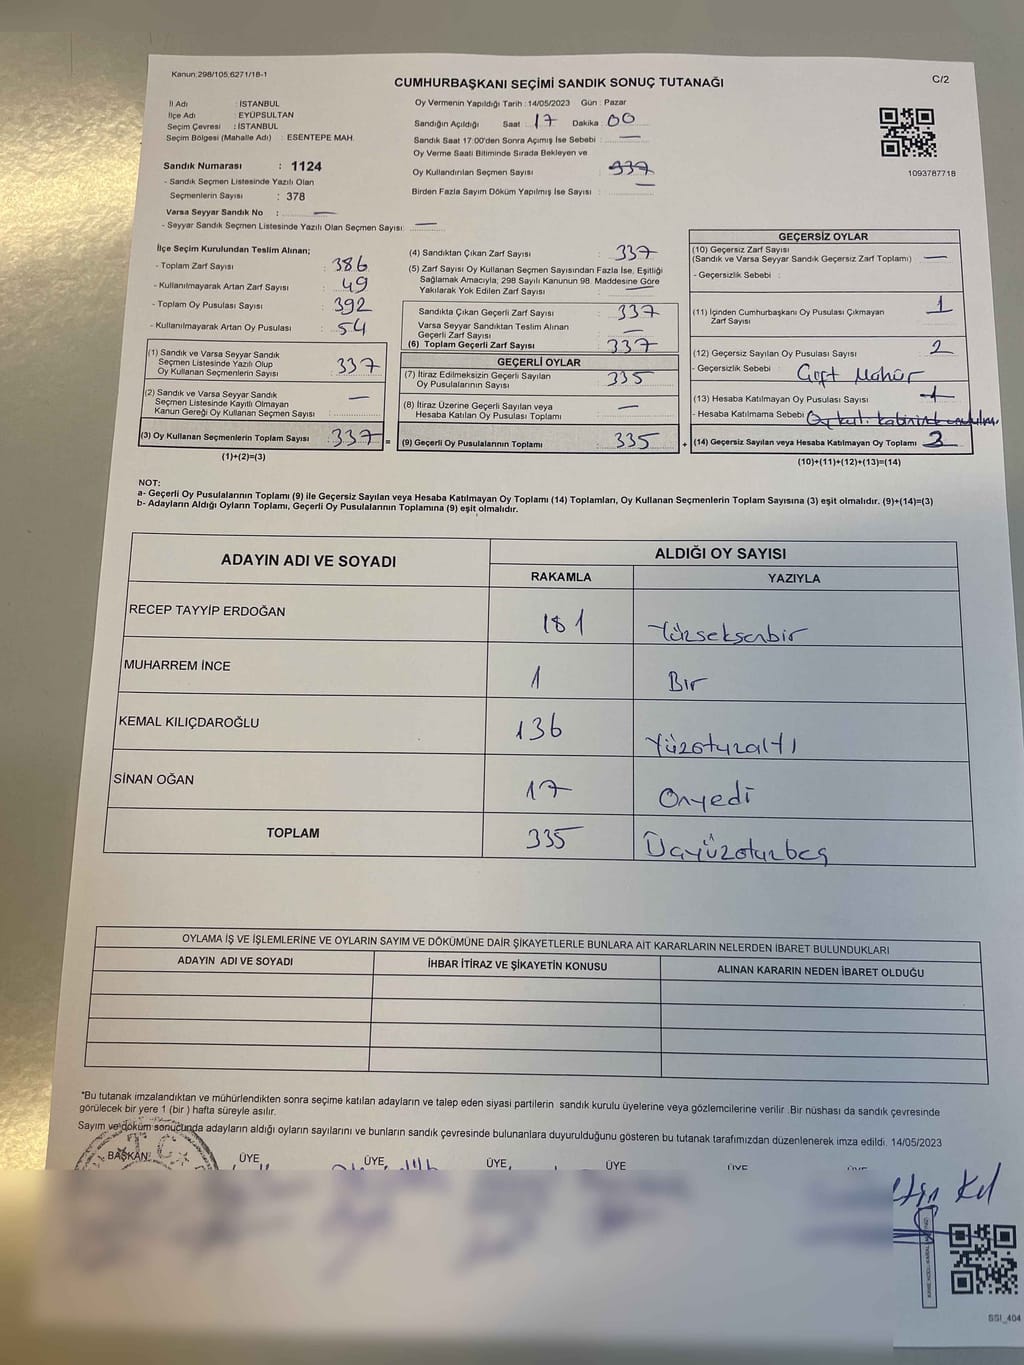 Kanun:298/105,6271/18-1
CUMHURBAŞKANI SEÇİMİ SANDIK SONUÇ TUTANAĞI
C/2
İl Adı : İSTANBUL
İlçe Adı : EYÜPSULTAN
Seçim Çevresi : İSTANBUL
Seçim Bölgesi (Mahalle Adı) : ESENTEPE MAH.
Sandık Numarası : 1124
- Sandık Seçmen Listesinde Yazılı Olan
Seçmenlerin Sayısı : 378
Varsa Seyyar Sandık No : —
- Seyyar Sandık Seçmen Listesinde Yazılı Olan Seçmen Sayısı: —
Oy Vermenin Yapıldığı Tarih : 14/05/2023 Gün : Pazar
Sandığın Açıldığı Saat : 17 Dakika : 00
Sandık Saat 17:00'den Sonra Açılmış İse Sebebi : —
Oy Verme Saati Bitiminde Sırada Bekleyen ve
Oy Kullandırılan Seçmen Sayısı : 337
Birden Fazla Sayım Döküm Yapılmış İse Sayısı : —
1093787718
İlçe Seçim Kurulundan Teslim Alınan;
- Toplam Zarf Sayısı : 386
- Kullanılmayarak Artan Zarf Sayısı : 49
- Toplam Oy Pusulası Sayısı : 392
- Kullanılmayarak Artan Oy Pusulası : 54
(1) Sandık ve Varsa Seyyar Sandık
Seçmen Listesinde Yazılı Olup
Oy Kullanan Seçmenlerin Sayısı : 337
(2) Sandık ve Varsa Seyyar Sandık
Seçmen Listesinde Kayıtlı Olmayan
Kanun Gereği Oy Kullanan Seçmen Sayısı : —
(3) Oy Kullanan Seçmenlerin Toplam Sayısı : 337 =
(1)+(2)=(3)
(4) Sandıktan Çıkan Zarf Sayısı : 337
(5) Zarf Sayısı Oy Kullanan Seçmen Sayısından Fazla İse, Eşitliği
Sağlamak Amacıyla; 298 Sayılı Kanunun 98. Maddesine Göre
Yakılarak Yok Edilen Zarf Sayısı : —
Sandıkta Çıkan Geçerli Zarf Sayısı : 337
Varsa Seyyar Sandıktan Teslim Alınan
Geçerli Zarf Sayısı : —
(6) Toplam Geçerli Zarf Sayısı : 337
GEÇERLİ OYLAR
(7) İtiraz Edilmeksizin Geçerli Sayılan
Oy Pusulalarının Sayısı : 335
(8) İtiraz Üzerine Geçerli Sayılan veya
Hesaba Katılan Oy Pusulası Toplamı : —
(9) Geçerli Oy Pusulalarının Toplamı : 335 +
GEÇERSİZ OYLAR
(10) Geçersiz Zarf Sayısı
(Sandık ve Varsa Seyyar Sandık Geçersiz Zarf Toplamı) : —
- Geçersizlik Sebebi :
(11) İçinden Cumhurbaşkanı Oy Pusulası Çıkmayan
Zarf Sayısı : 1
(12) Geçersiz Sayılan Oy Pusulası Sayısı : 2
- Geçersizlik Sebebi : Çift Mühür
(13) Hesaba Katılmayan Oy Pusulası Sayısı : 1
- Hesaba Katılmama Sebebi : Oy kul. kabininde
(14) Geçersiz Sayılan veya Hesaba Katılmayan Oy Toplamı : 3
(10)+(11)+(12)+(13)=(14)
NOT:
a- Geçerli Oy Pusulalarının Toplamı (9) ile Geçersiz Sayılan veya Hesaba Katılmayan Oy Toplamı (14) Toplamları, Oy Kullanan Seçmenlerin Toplam Sayısına (3) eşit olmalıdır. (9)+(14)=(3)
b- Adayların Aldığı Oyların Toplamı, Geçerli Oy Pusulalarının Toplamına (9) eşit olmalıdır.
ADAYIN ADI VE SOYADI ALDIĞI OY SAYISI
RAKAMLA YAZIYLA
RECEP TAYYİP ERDOĞAN 181 Yüzseksenbir
MUHARREM İNCE 1 Bir
KEMAL KILIÇDAROĞLU 136 Yüzotuzaltı
SİNAN OĞAN 17 Onyedi
TOPLAM 335 Üçyüzotuzbeş
OYLAMA İŞ VE İŞLEMLERİNE VE OYLARIN SAYIM VE DÖKÜMÜNE DAİR ŞİKAYETLERLE BUNLARA AİT KARARLARIN NELERDEN İBARET BULUNDUKLARI
ADAYIN ADI VE SOYADI İHBAR İTİRAZ VE ŞİKAYETİN KONUSU ALINAN KARARIN NEDEN İBARET OLDUĞU
*Bu tutanak imzalandıktan ve mühürlendikten sonra seçime katılan adayların ve talep eden siyasi partilerin sandık kurulu üyelerine veya gözlemcilerine verilir .Bir nüshası da sandık çevresinde
görülecek bir yere 1 (bir ) hafta süreyle asılır.
Sayım ve döküm sonucunda adayların aldığı oyların sayılarını ve bunların sandık çevresinde bulunanlara duyurulduğunu gösteren bu tutanak tarafımızdan düzenlenerek imza edildi. 14/05/2023
BAŞKAN ÜYE ÜYE, ÜYE, ÜYE ÜYE
T.C.
SSI_404